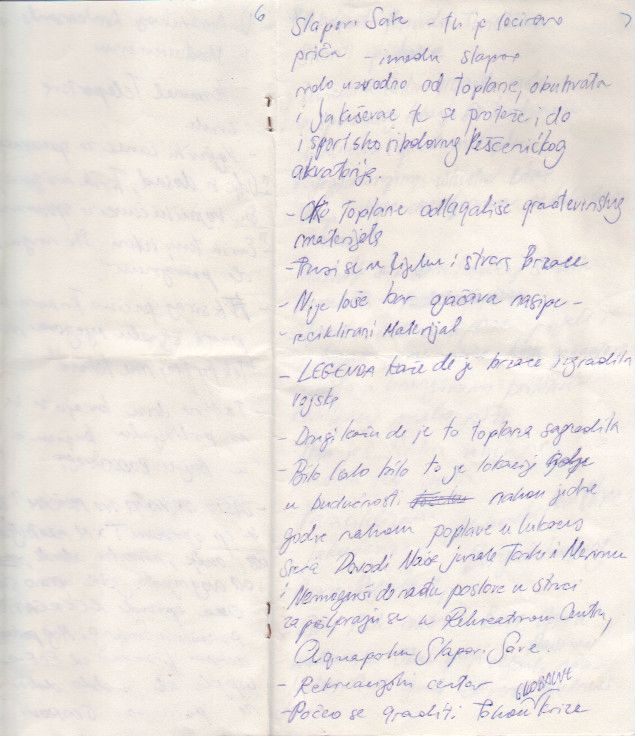 6
7
Slapovi Save - tu je locirana
priča - između slapova
malo uzvodno od toplane, obuhvata
i Jakuševac te se proteže i do
i sportsko ribolovnog Peščeničkog
akvatorija.
- Oko Toplane odlagalište građevinskog
materijala
- Pruži se u Rijeku i stvara Brzace
- Nije loše bar ojačava nasipe -
- reciklirani Materijal
- LEGENDA kaže da je brzace izgradila
vojska
- Drugi kažu da je to toplana sagradila
- Bilo kako bilo to je lokacija gdje
u budućnosti nakon jedne
godine nakon poplave u
sreća Dovodi Naše junake Tonku i
i Nemogavši da nađu poslove u struci
se u Rekreativnom Centru
Aquaparku Slapovi Save
- Rekreacijski centar
GLOBALNE
- Počeo se graditi Tokom Krize